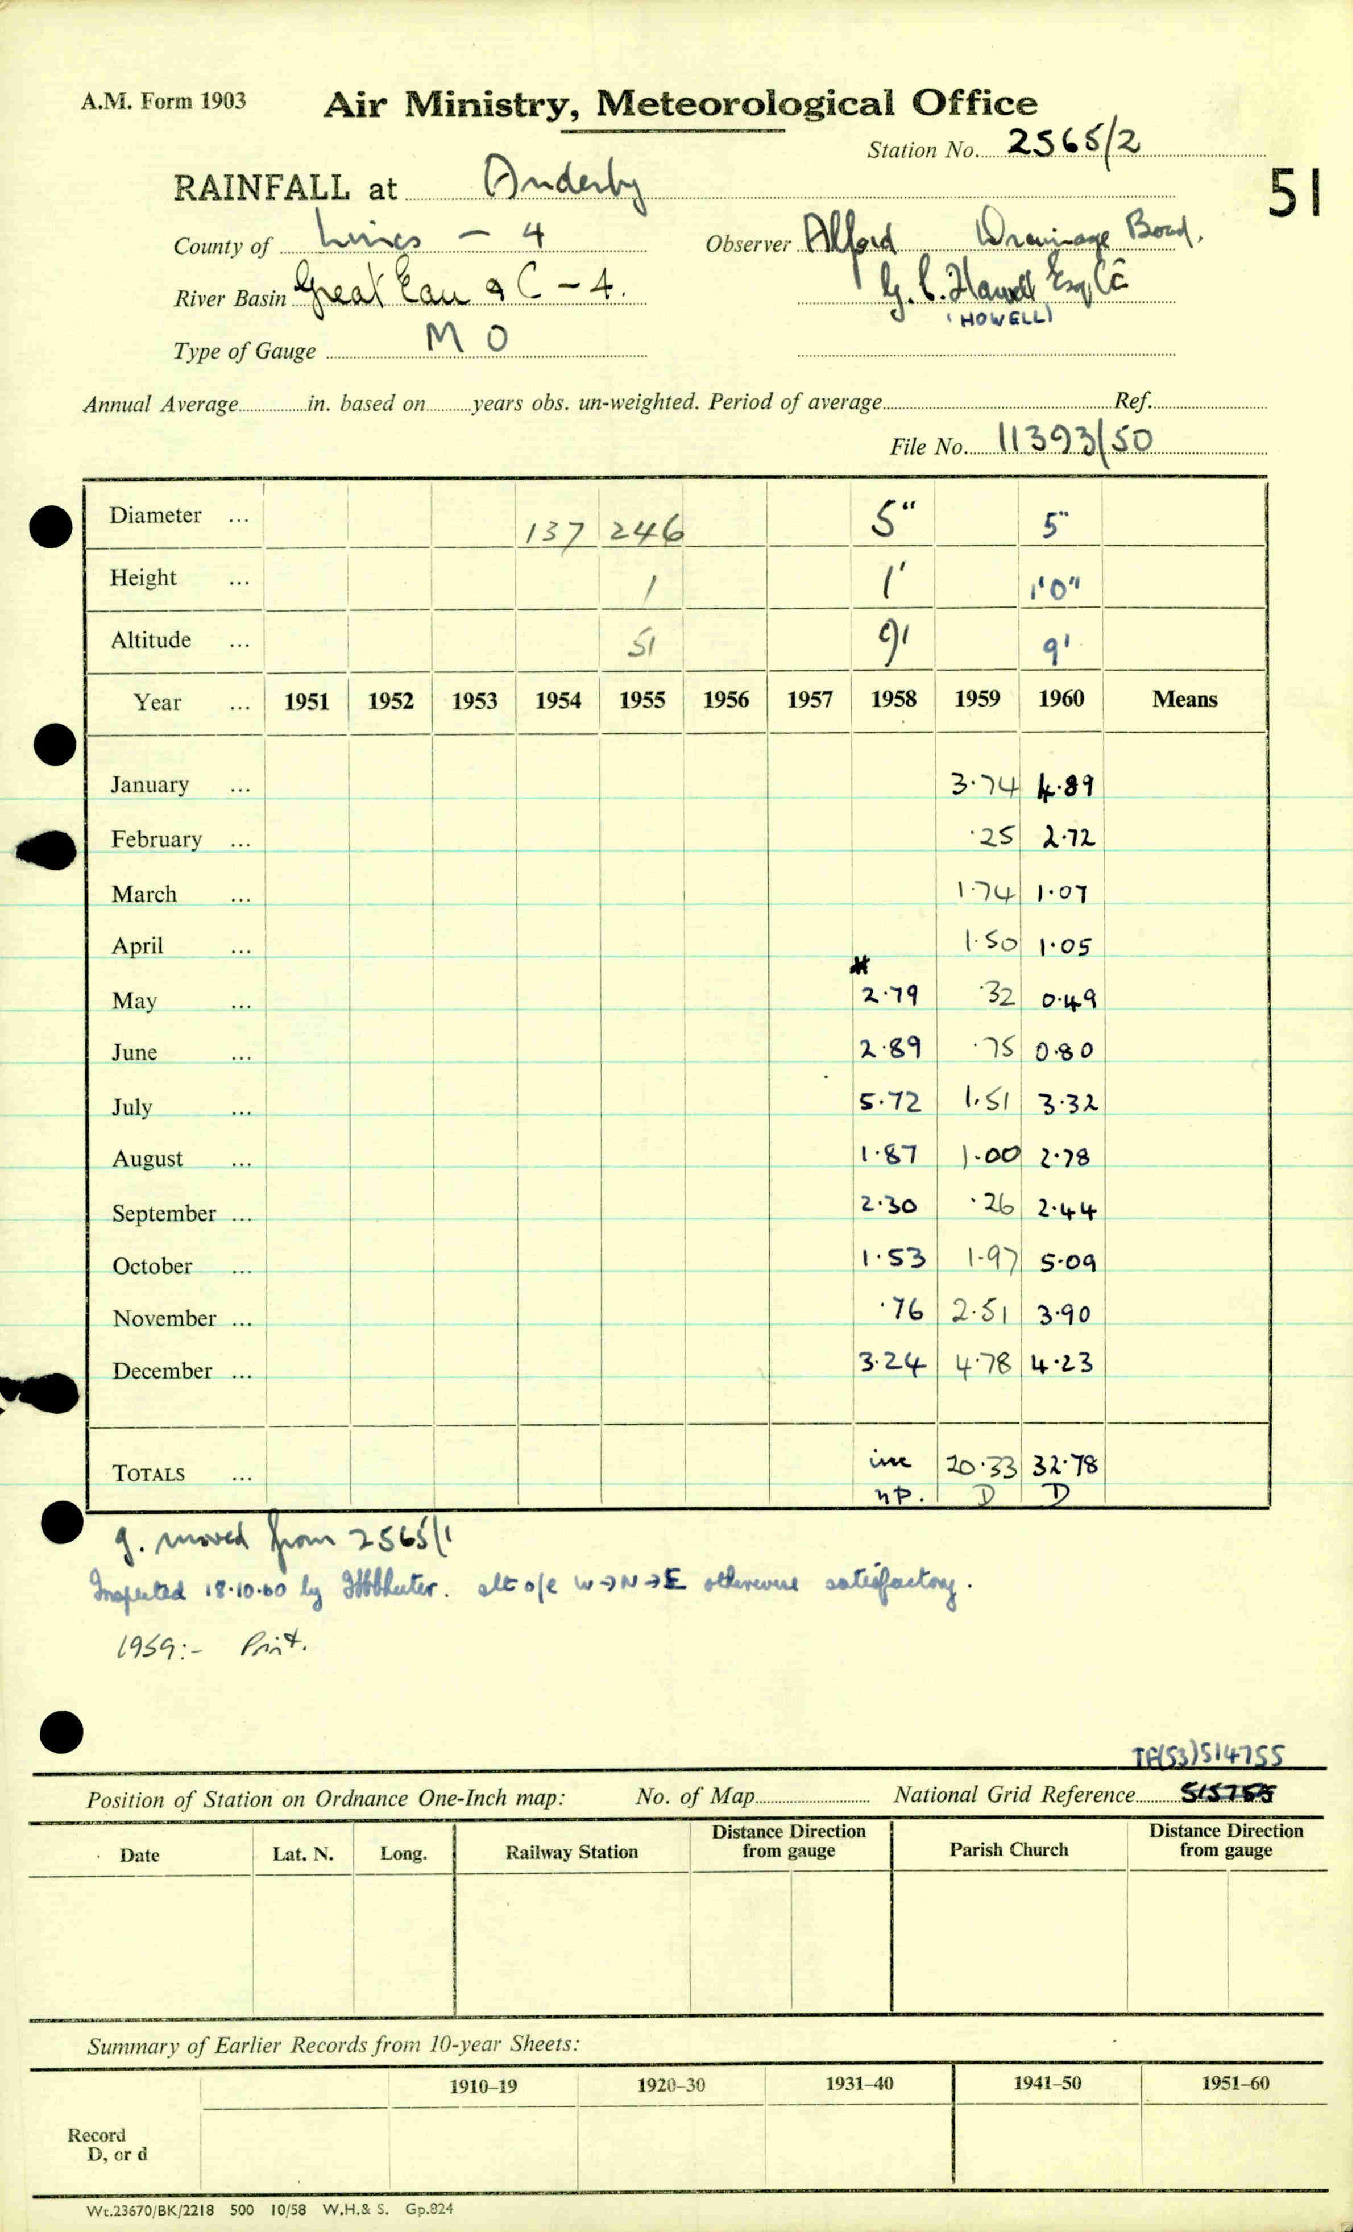 A.M. Form 1903 Air Ministry, Meteorological Office
Station No. 2565/2
RAINFALL at Anderby 51
County of Lincs - 4 Observer Alford Drainage Board.
River Basin Great Eau & C - 4. G. C. Howell Esq, CE
(HOWELL)
Type of Gauge M O
Annual Average in. based on years obs. un-weighted. Period of average Ref.
File No. 11393/50
Diameter ... 137 246 5" 5"
Height ... 1 1' 1'0"
Altitude ... 51 9' 9'
Year ... 1951 1952 1953 1954 1955 1956 1957 1958 1959 1960 Means
January ... 3.74 4.89
February ... .25 2.72
March ... 1.74 1.07
April ... 1.50 1.05
May ... 2.79 .32 0.49
June ... 2.89 .75 0.80
July ... 5.72 1.51 3.32
August ... 1.87 1.00 2.78
September ... 2.30 .26 2.44
October ... 1.53 1.97 5.09
November ... .76 2.51 3.90
December ... 3.24 4.78 4.23
TOTALS ... inc 20.33 32.78
np. D D
g. moved from 2565/1
Inspected 18.10.60 by alt o/e W→N→E otherwise satisfactory.
1959:- Print.
TF(53)514755
Position of Station on Ordnance One-Inch map: No. of Map National Grid Reference 515755
Date Lat. N. Long. Railway Station Distance Direction from gauge Parish Church Distance Direction from gauge
Summary of Earlier Records from 10-year Sheets:
1910–19 1920–30 1931–40 1941–50 1951–60
Record
D, or d
Wt.23670/BK/2218 500 10/58 W.H.& S. Gp.824